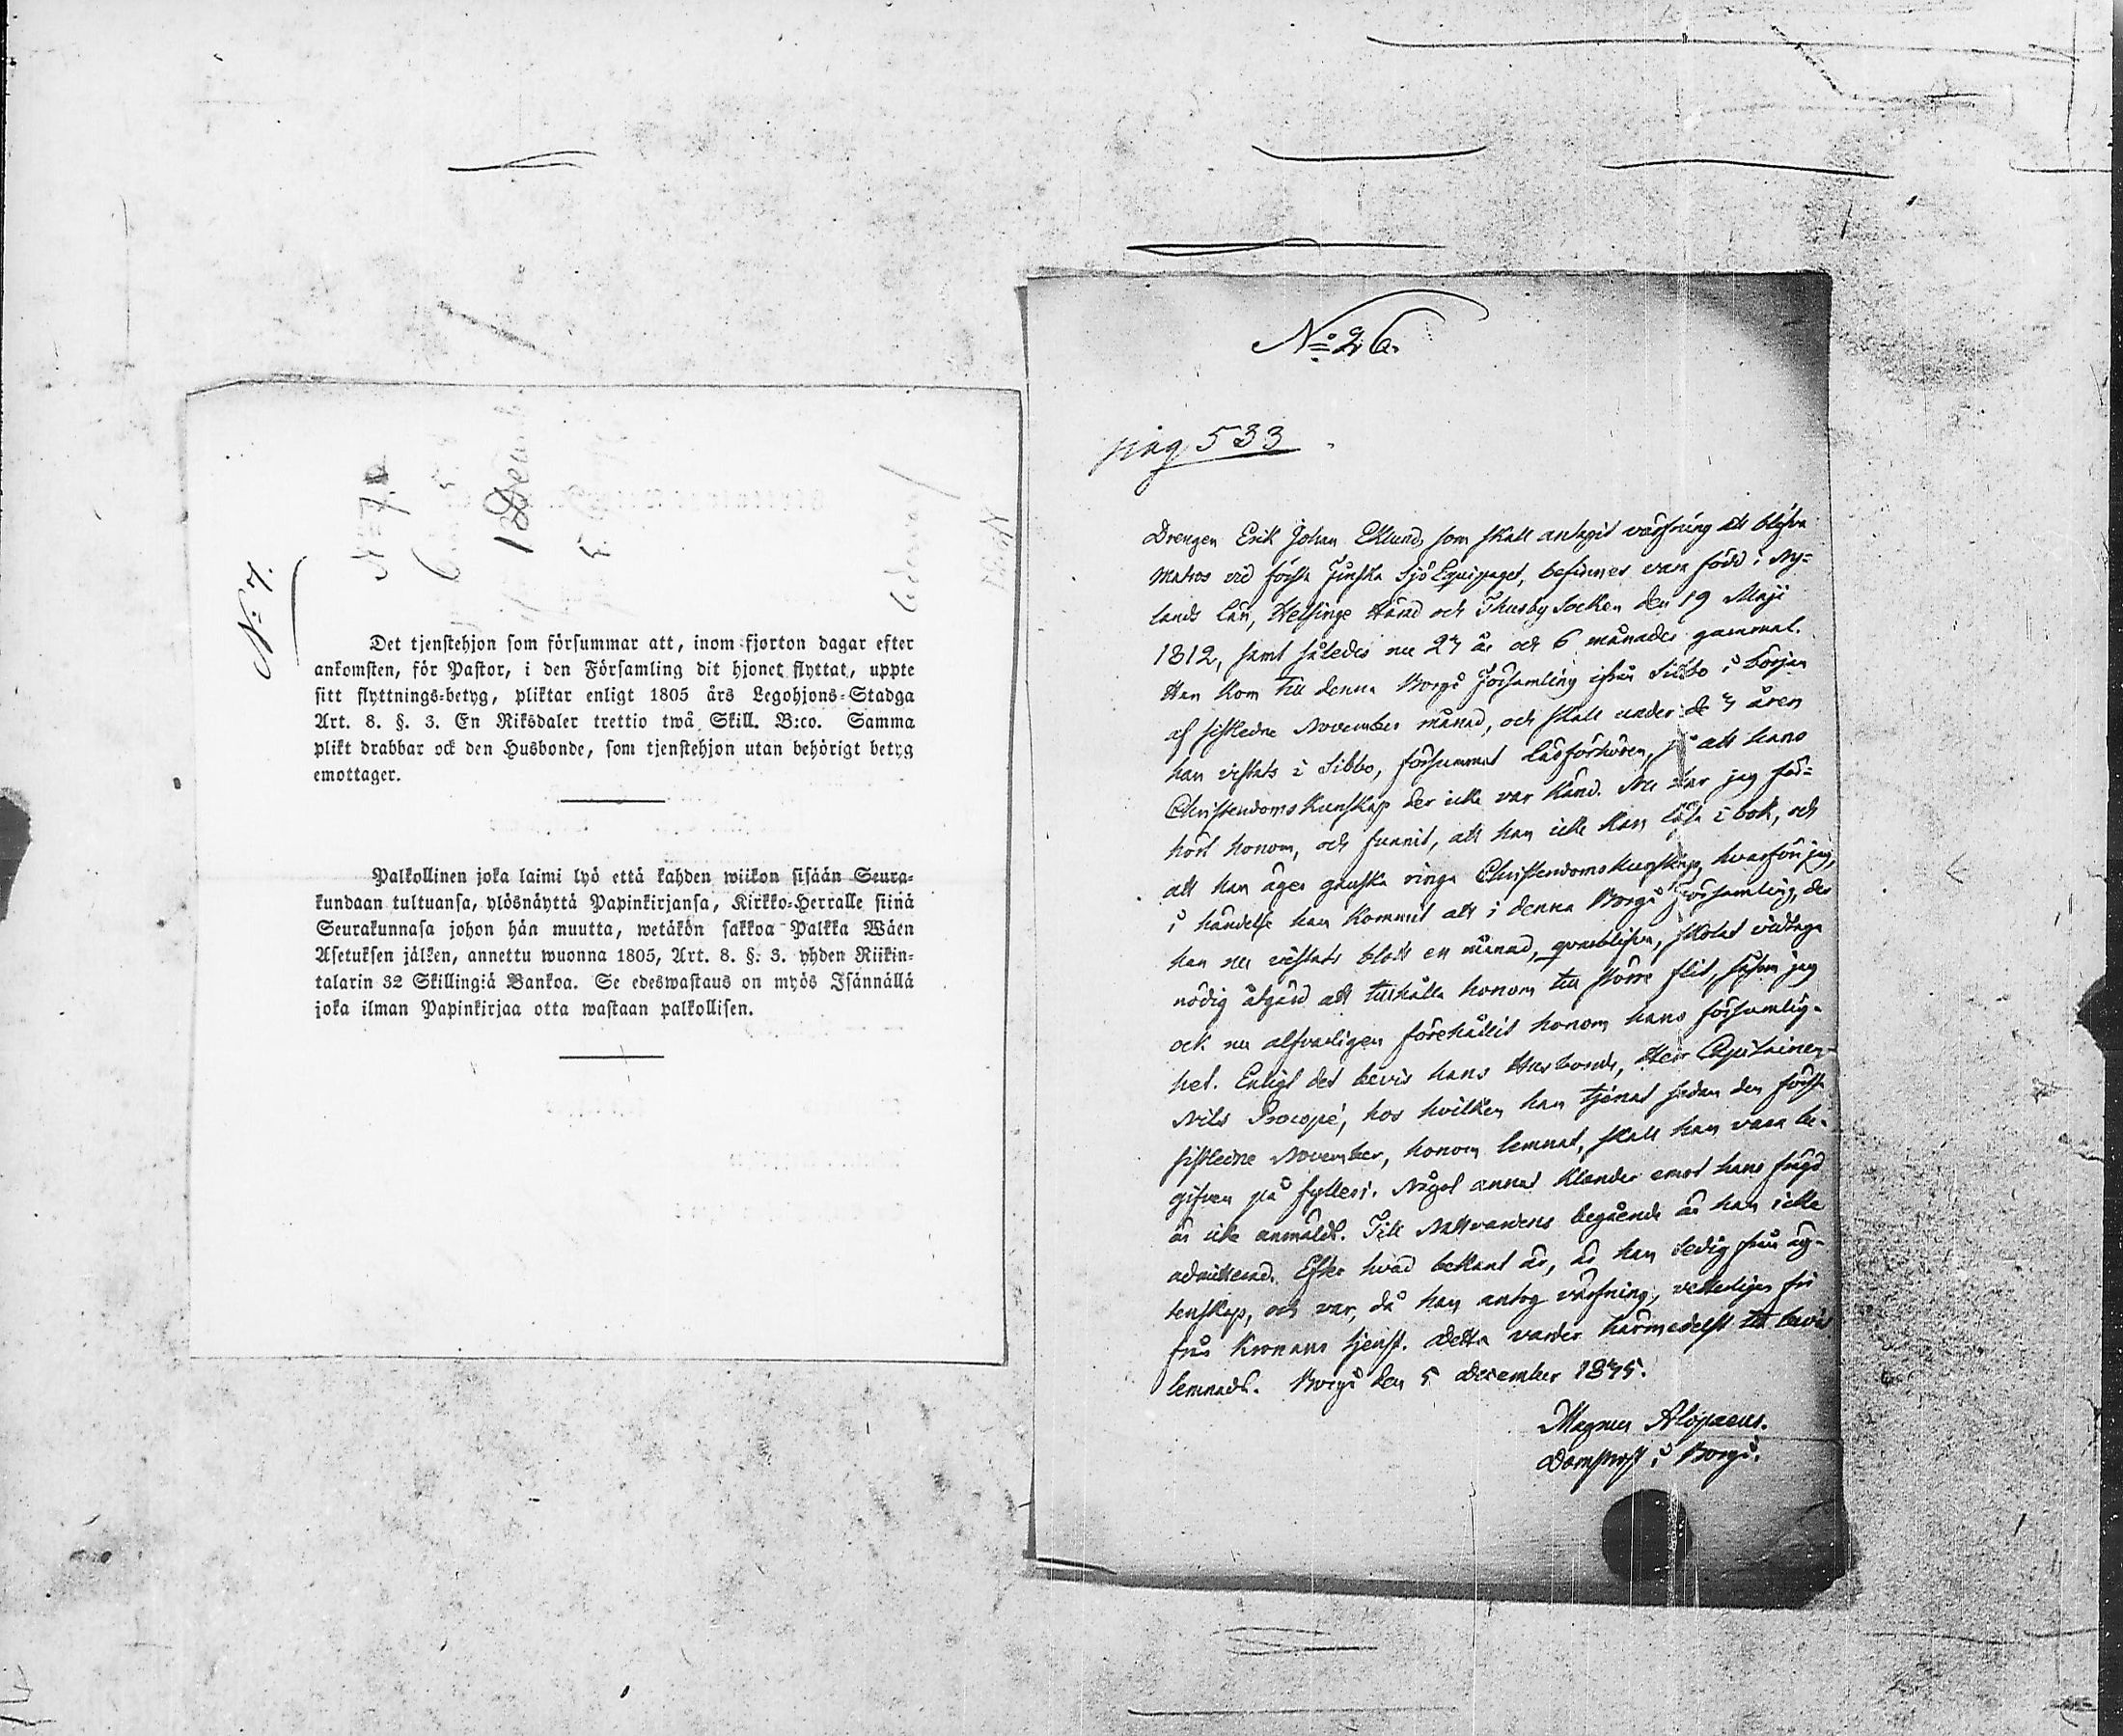 N:o 7.
Det tjenstehjon som försummar att, inom fjorton dagar efter
ankomsten, för Pastor, i den Församling dit hjonet flyttat, uppte
sitt flyttnings-betyg, pliktar enligt 1805 års Legohjons-Stadga
Art. 8. §. 3. En Riksdaler trettio twå Skill. B:co. Samma
plikt drabbar ock den Husbonde, som tjenstehjon utan behörigt betyg
emottager.
Palkollinen joka laimi lyö että kahden wiikon sisään Seura-
kundaan tultuansa, ylösnäyttä Papinkirjansa, Kirkko-Herralle siinä
Seurakunnasa johon hän muutta, wetäkön sakkoa Palkka Wäen
Asetuksen jälken, annettu wuonna 1805, Art. 8. §. 3. yhden Riikin-
talarin 32 Skillingiä Bankoa. Se edeswastaus on myös Isännällä
joka ilman Papinkirjaa otta wastaan palkollisen.
No 26.
pag 533
Drengen Erik Johan Eklund, som skall antagit värfning att blifva
Matros vid första Finska Sjö Equipaget, befinnes vara född i Ny-
lands Län, Helsinge Härad och Thusby Socken den 19 Maji
1812, samt således nu 23 år och 6 månader gammal.
Han kom till denna Borgå Församling ifrån Sibbo i början
af sistledne November månad, och skall under de 3 åren
han vistats i Sibbo, försummat läsförhören, så att hans
Christendoms Kunskap der icke var känd. Nu har jag för-
hört honom, och funnit, att han icke kan läsa i bok, och
att han äger ganska ringa Christendomskunskap, hvarföre jag,
i händelse han kommit att i denna Borgå Församling, der
han nu vistats blott en månad, qvarblifva, skolat vidtaga
nödig åtgärd att tillhålla honom till större flit, såsom jag
ock nu alfvarligen förehållit honom hans försumlig-
het. Enligt det bevis hans Husbonde, Herr Capitainen
Nils Procopé, hos hvilken han tjenat sedan den första
sistledne November, honom lemnat, skall han vara be-
gifven på fylleri. Något annat klander emot hans frägd
är icke anmäldt. Till Nattvardens begående är han icke
admitterad. Efter hvad bekant är, är han ledig från äg-
tenskap, och var, då han antog värfning, vetterligen fri
från Kronans tjenst. Detta varder härmedelst till bevis
lemnadt. Borgå den 5 December 1835.
Magnus Alopaeus.
Domprost i Borgå.